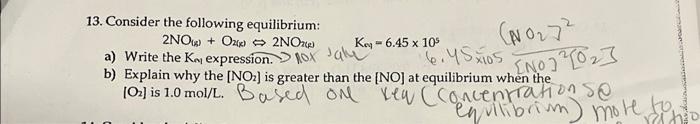 13. Consider the following equilibrium:
2NO(g) + O2(g) ⇔ 2NO2(g) Keq = 6.45 x 10⁵
(NO2)²
a) Write the Keq expression. not 6.45x105 [NO]²[O2]
b) Explain why the [NO₂] is greater than the [NO] at equilibrium when the
[O₂] is 1.0 mol/L. Based on keq (concentration
equilibrium) more to